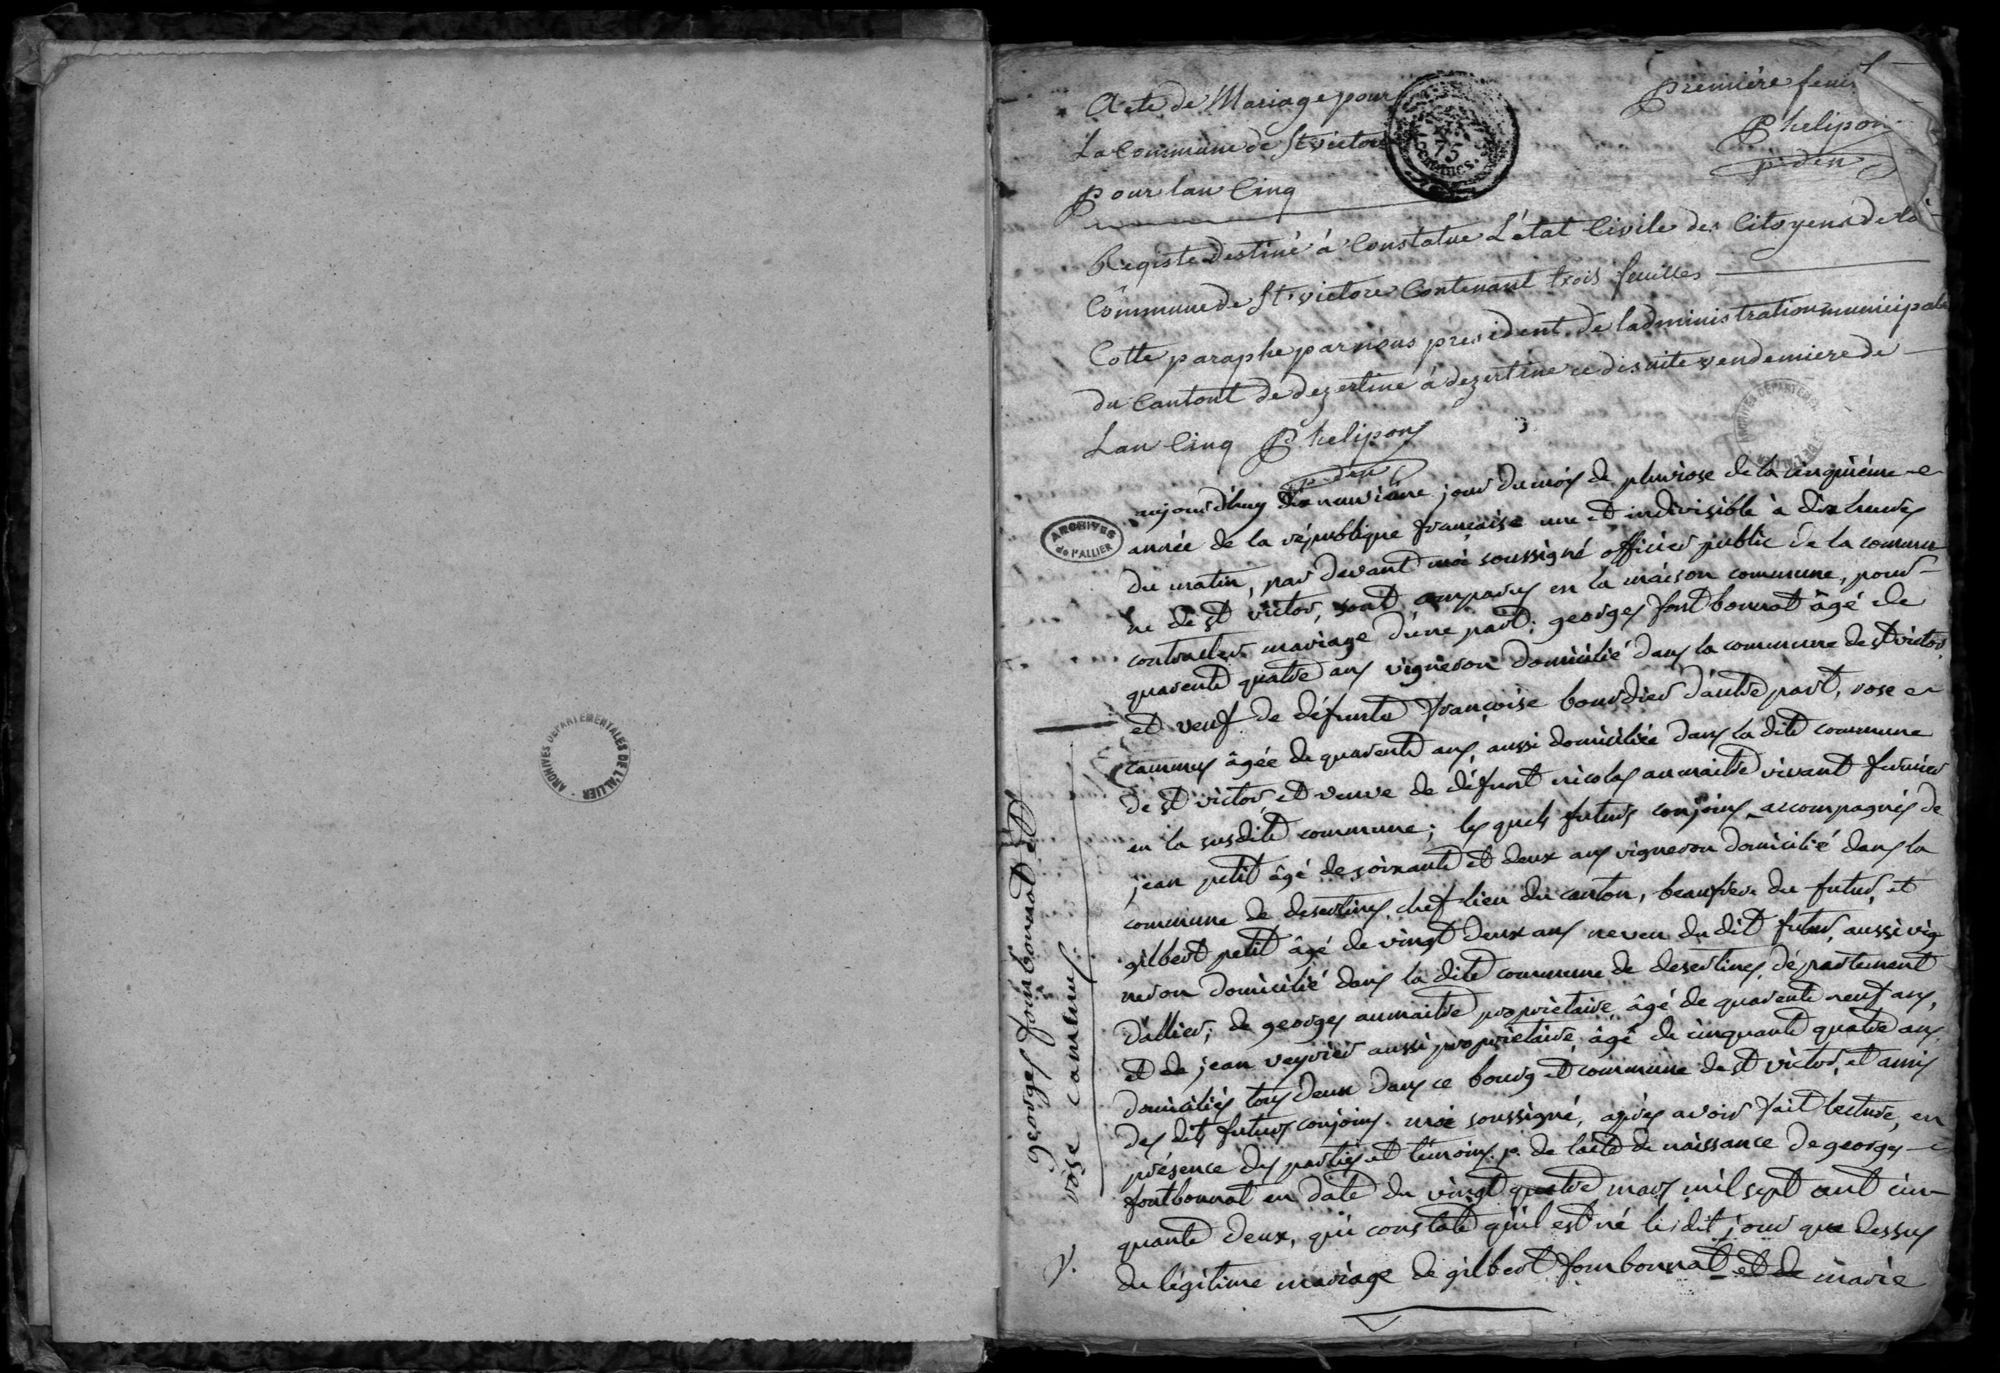 ARCHIVES DÉPARTEMENTALES DE L'ALLIER
Acte de Mariage pour
La Commune de St victore
pour lan Cinq
75
CENTIMES.
premiére feui
Phelipon
p.den
Registe destiné à Constatue L'état Civile des Citoyens de la
Commune de St victore Contenant trois feuilles
Cotte paraphe par nous president de ladministration municipale
du Cantont de dezertine á dezertine ce disuite vendemiere de
Lan Cinq Phelipon
p.den
ARCHIVES de l'ALLIER
aujourd'huy dixneuvième jour du mois de pluviose de la cinquième
année de la république française une et indivisible à dix heures
du matin, par devant moi soussigné officier public de la commu-
ne de st victor, sont comparus en la maison commune, pour
contracter mariage d'une part; georges fontbonnat âgé de
quarente quatre ans vigneron domicilié dans la commune de st victor,
et veuf de défunte françoise bourdier d'autre part, rose
camus âgée de quarente ans aussi domiciliée dans la dite commune
de st victor, et veuve de défunt nicolas aumaitre vivant fermier
en la susdite commune; les quels futurs conjoins accompagnés de
jean petit âgé de soixante et deux ans vigneron domicilié dans la
commune de desertines, chef lieu du canton, beaufrere du futur, et
gilbert petit âgé de vingt deux ans neveu du dit futur, aussi vig
neron domicilié dans la dite commune de desertines, département
d'allier; de georges aumaitre propriétaire âgé de quarente neuf ans,
et de jean veyrier aussi propriétaire, âgé de cinquante quatre ans,
domiciliés tous deux dans ce bourg et commune de st victor, et amis
des dits futurs conjoins. moi soussigné, après avoir fait lecture, en
présence des parties et témoins. p. de l'acte de naissance de georges
fontbonnat en date du vingt quatre mars mil sept cent cin-
quante deux, qui constate qu'il est né le dit jour que dessus
du légitime mariage de gilbert fombonnat et de marie
georges fombonnat et
rose camus.